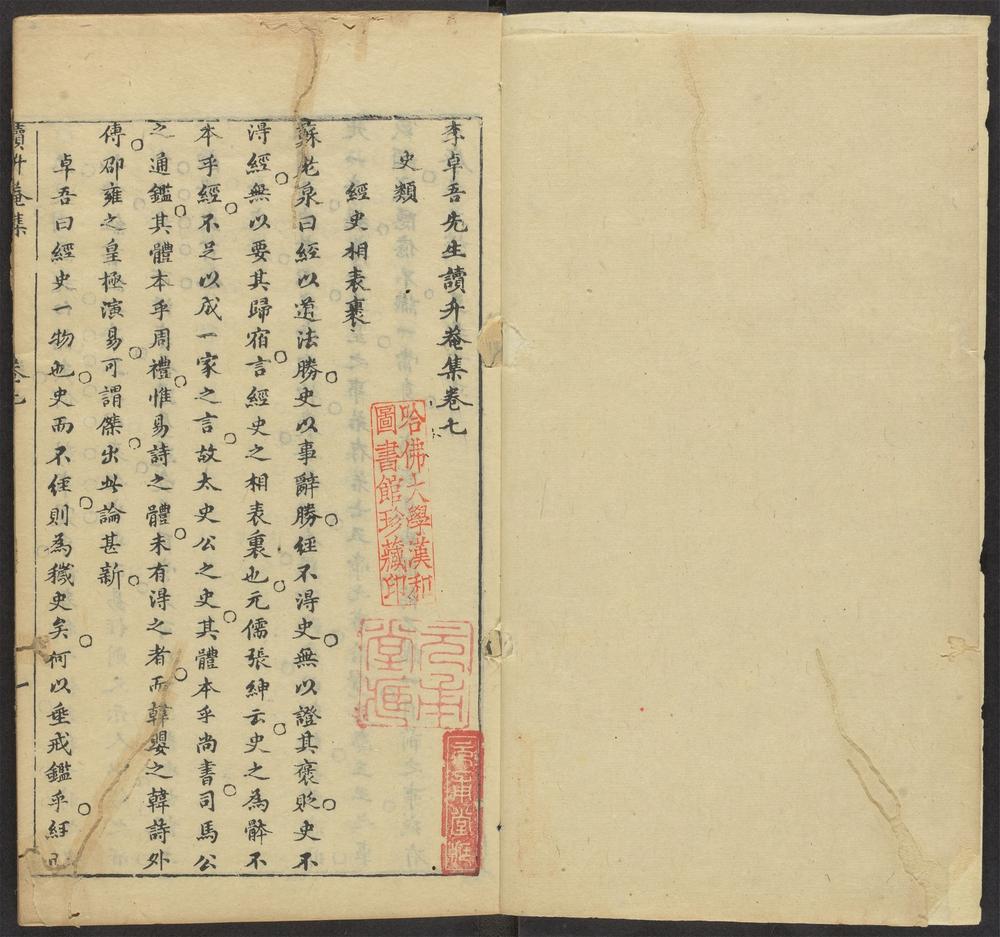 李卓吾先生讀升菴集卷七
史類
經史相表裏
蘇老泉曰經以道法勝史以事辭勝經不得史無以證其褒貶史不
得經無以要其歸宿言經史之相表裏也元儒張紳云史之為體不
本乎經不足以成一家之言故太史公之史其體本乎尚書司馬公
之通鑑其體本乎周禮惟易詩之體未有得之者而韓嬰之韓詩外
傳邵雍之皇極演易可謂傑出此論甚新
卓吾曰經史一物也史而不經則為穢史矣何以垂戒鑑乎經
讀升菴集
卷七
哈佛大學漢和
圖書館珍藏印